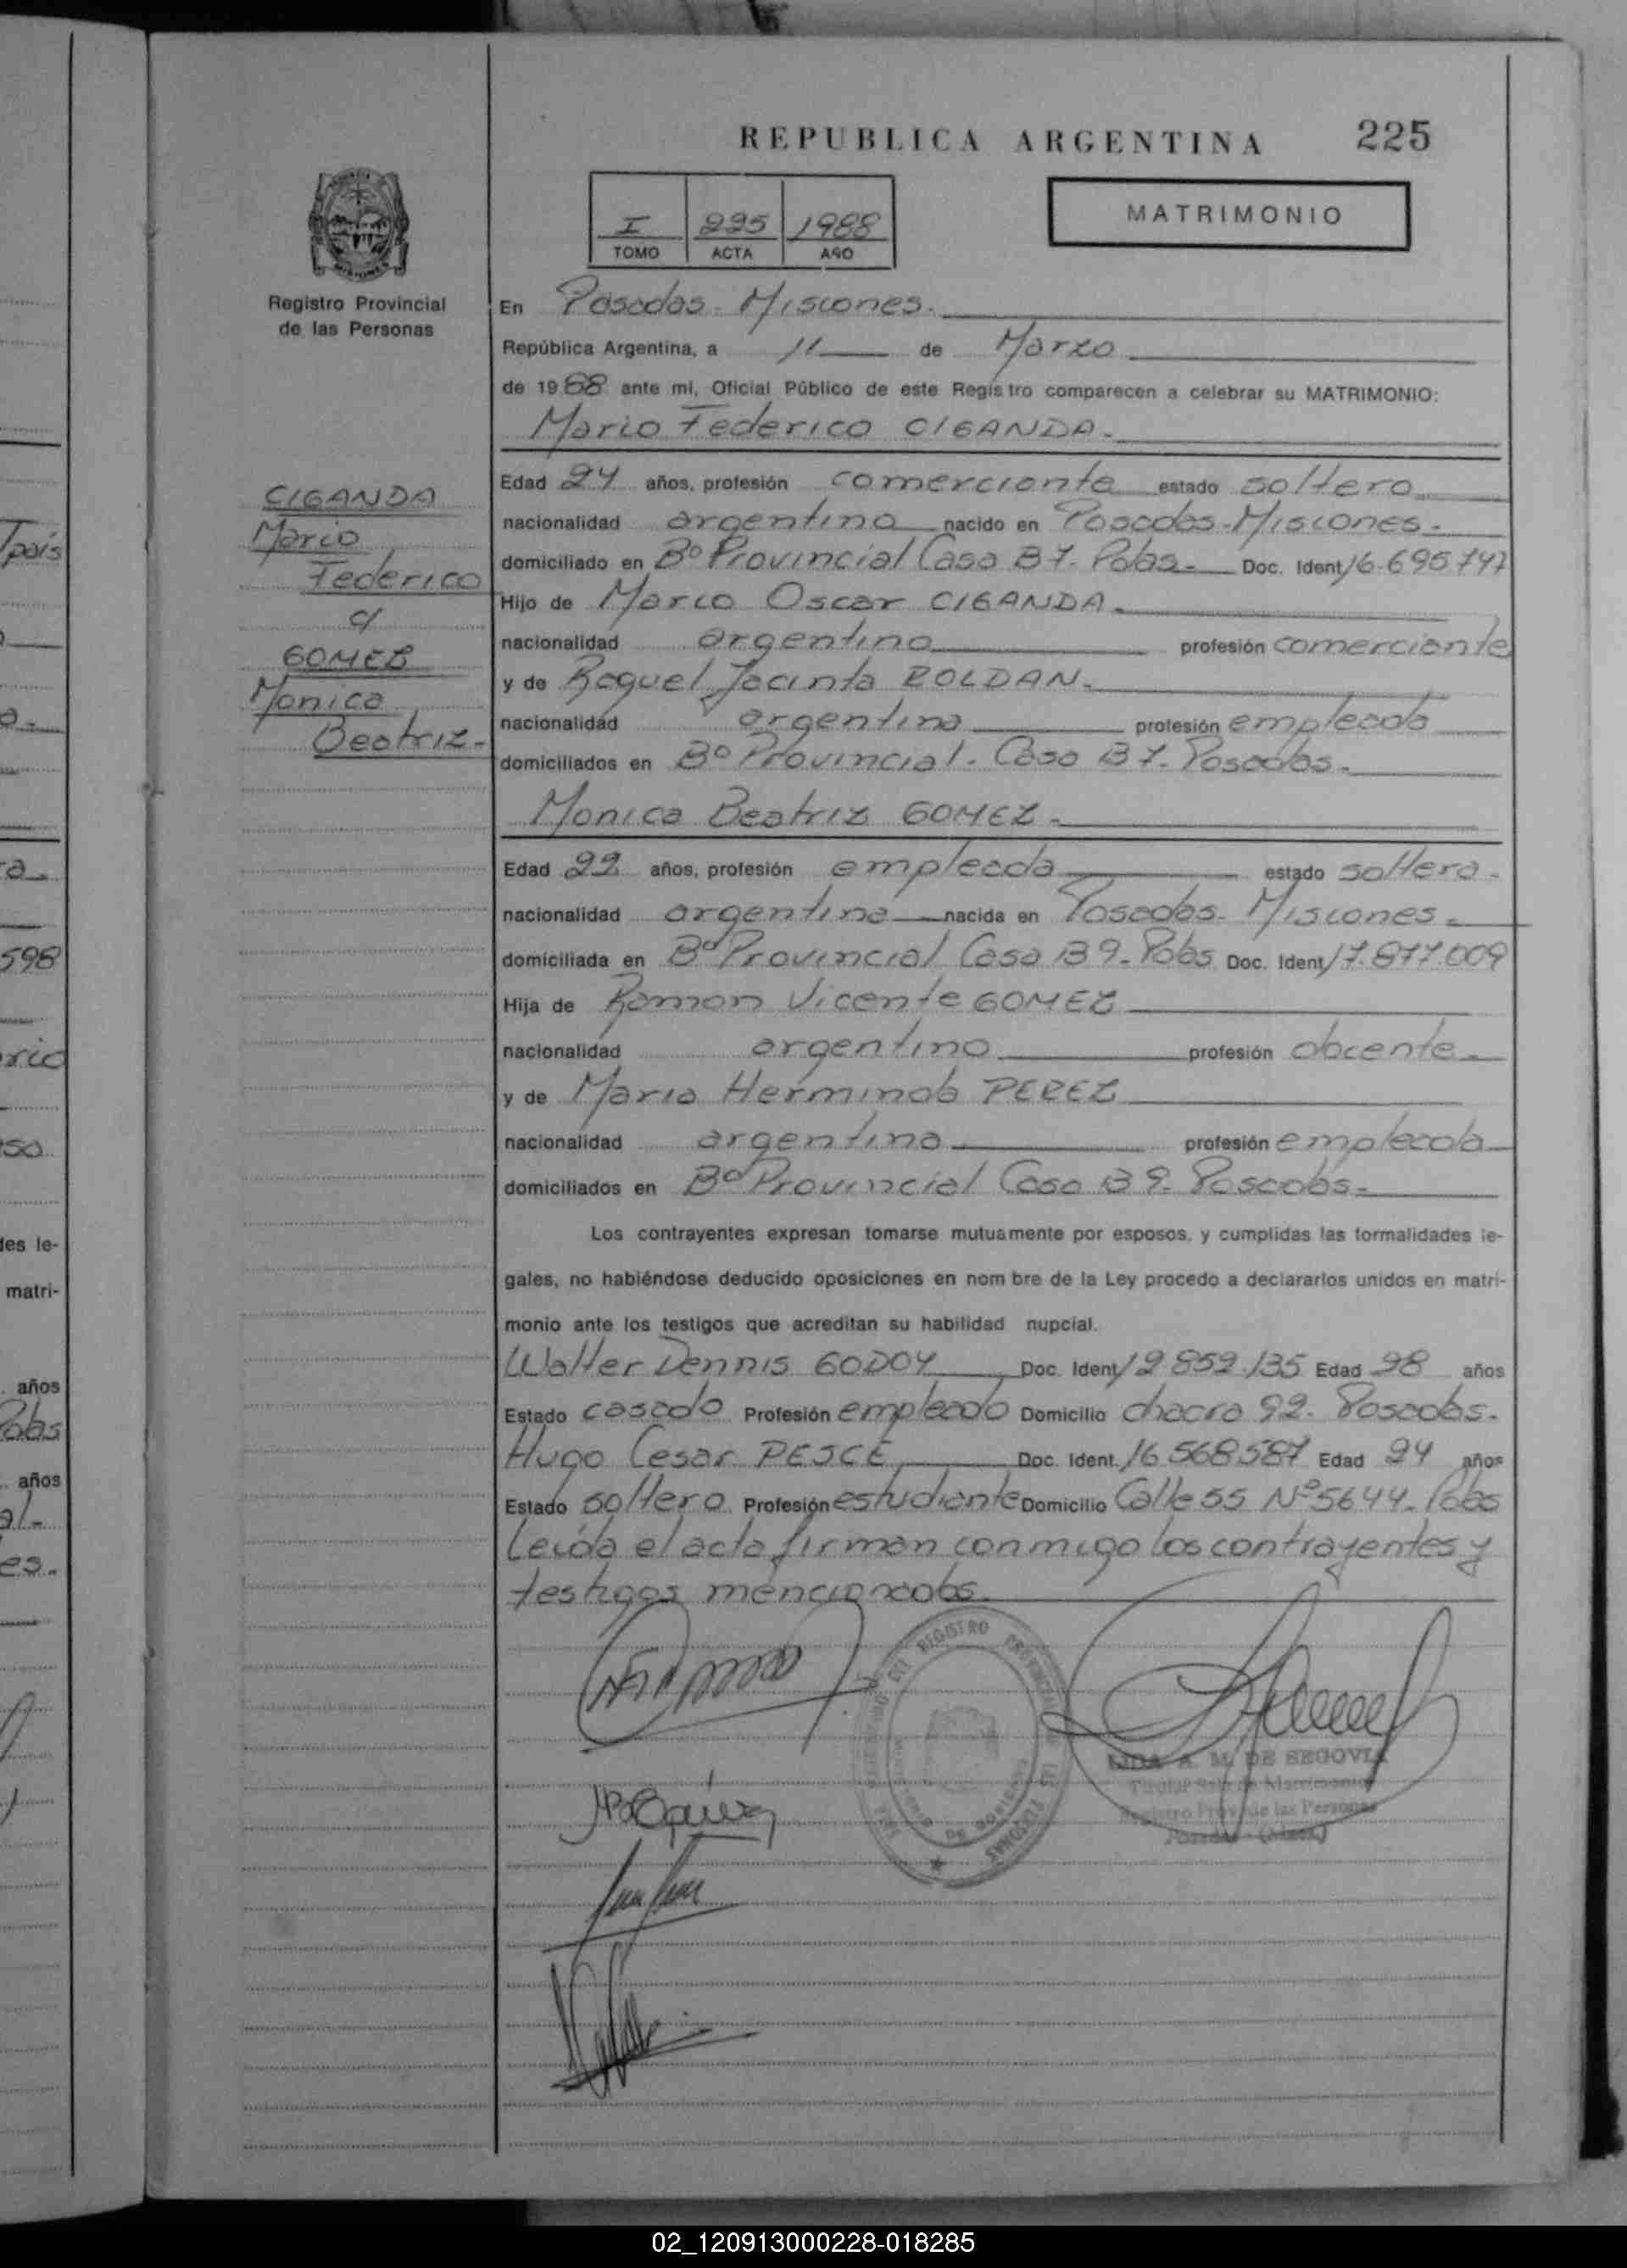 REPUBLICA ARGENTINA 225
MATRIMONIO
I 225 1988
TOMO ACTA AÑO
Registro Provincial
de las Personas
En Posadas - Misiones.
República Argentina, a 11 de Marzo
de 1988 ante mi, Oficial Público de este Registro comparecen a celebrar su MATRIMONIO:
Mario Federico CIGANDA.
CIGANDA
Mario
Federico
c/
GOMEZ
Monica
Beatriz-
Edad 24 años, profesión comerciante estado soltero
nacionalidad argentina nacido en Posadas - Misiones.
domiciliado en Bº Provincial Casa B 7. Pdas. Doc. Ident 16.695.747
Hijo de Mario Oscar CIGANDA.
nacionalidad argentino profesión comerciante
y de Raquel Jacinta ROLDAN.
nacionalidad argentina profesión empleada
domiciliados en Bº Provincial. Casa B 7. Posadas.
Monica Beatriz GOMEZ.
Edad 22 años, profesión empleada estado soltera.
nacionalidad argentina nacida en Posadas. Misiones.
domiciliada en Bº Provincial Casa B 9. Pdas Doc. Ident 17.877.009
Hija de Ramon Vicente GOMEZ
nacionalidad argentino profesión docente.
y de Maria Herminda PEREZ
nacionalidad argentina profesión empleada
domiciliados en Bº Provincial Casa B 9. Posadas.
Los contrayentes expresan tomarse mutuamente por esposos, y cumplidas las formalidades le-
gales, no habiéndose deducido oposiciones en nombre de la Ley procedo a declararlos unidos en matri-
monio ante los testigos que acreditan su habilidad nupcial.
Walter Dennis GODOY Doc. Ident 12.852.135 Edad 28 años
Estado casado Profesión empleado Domicilio chacra 92. Posadas.
Hugo Cesar PESCE Doc. Ident. 16.568.587 Edad 24 años
Estado soltero Profesión estudiante Domicilio Calle 55 Nº 5644. Pdas
Leída el acta firman conmigo los contrayentes y
testigos mencionados.
REGISTRO PROVINCIAL
A. M. DE SEGOVIA
Titular Sala de Matrimonios
Registro Prov. de las Personas
Posadas - (Mnes.)
598
des le-
matri-
años
Pdas
años
02_120913000228-018285